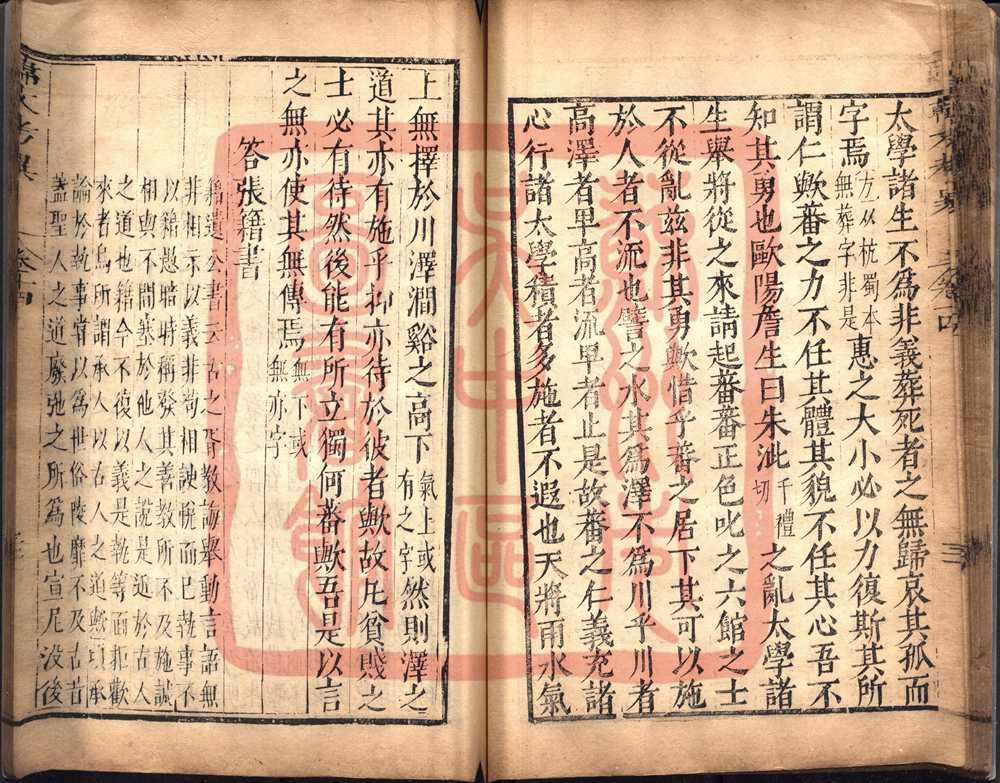 太學諸生不爲非義葬死者之無歸哀其孤而
字焉方從杭蜀本無葬字非是惠之大小必以力復斯其所
謂仁歟蕃之力不任其體其貌不任其心吾不
知其勇也歐陽詹生曰朱泚千禮切之亂太學諸
生舉將從之來請起蕃蕃正色叱之六館之士
不從亂茲非其勇歟惜乎蕃之居下其可以施
於人者不流也譬之水其爲澤不爲川乎川者
高澤者卑高者流卑者止是故蕃之仁義充諸
心行諸太學積者多施者不遐也天將雨水氣
上無擇於川澤澗谿之高下氣上或有之字然則澤之
道其亦有施乎抑亦待於彼者歟故凡貧賤之
士必有待然後能有所立獨何蕃歟吾是以言
之無亦使其無傳焉無下或無亦字
答張籍書
籍遺公書云古之胥教誨舉動言語無
非相示以義非苟相諛悅而已執事不
以籍愚暗時稱發其善教所不及施誠
相與不間塞於他人之說是近於古人
之道也籍今不復以義是執竿而拒歡
來者烏所謂承人以古人之道歟頃承
論於執事嘗以爲世俗陵靡不及古昔
蓋聖人之道廢弛之所爲也宣尼沒後
卷十四